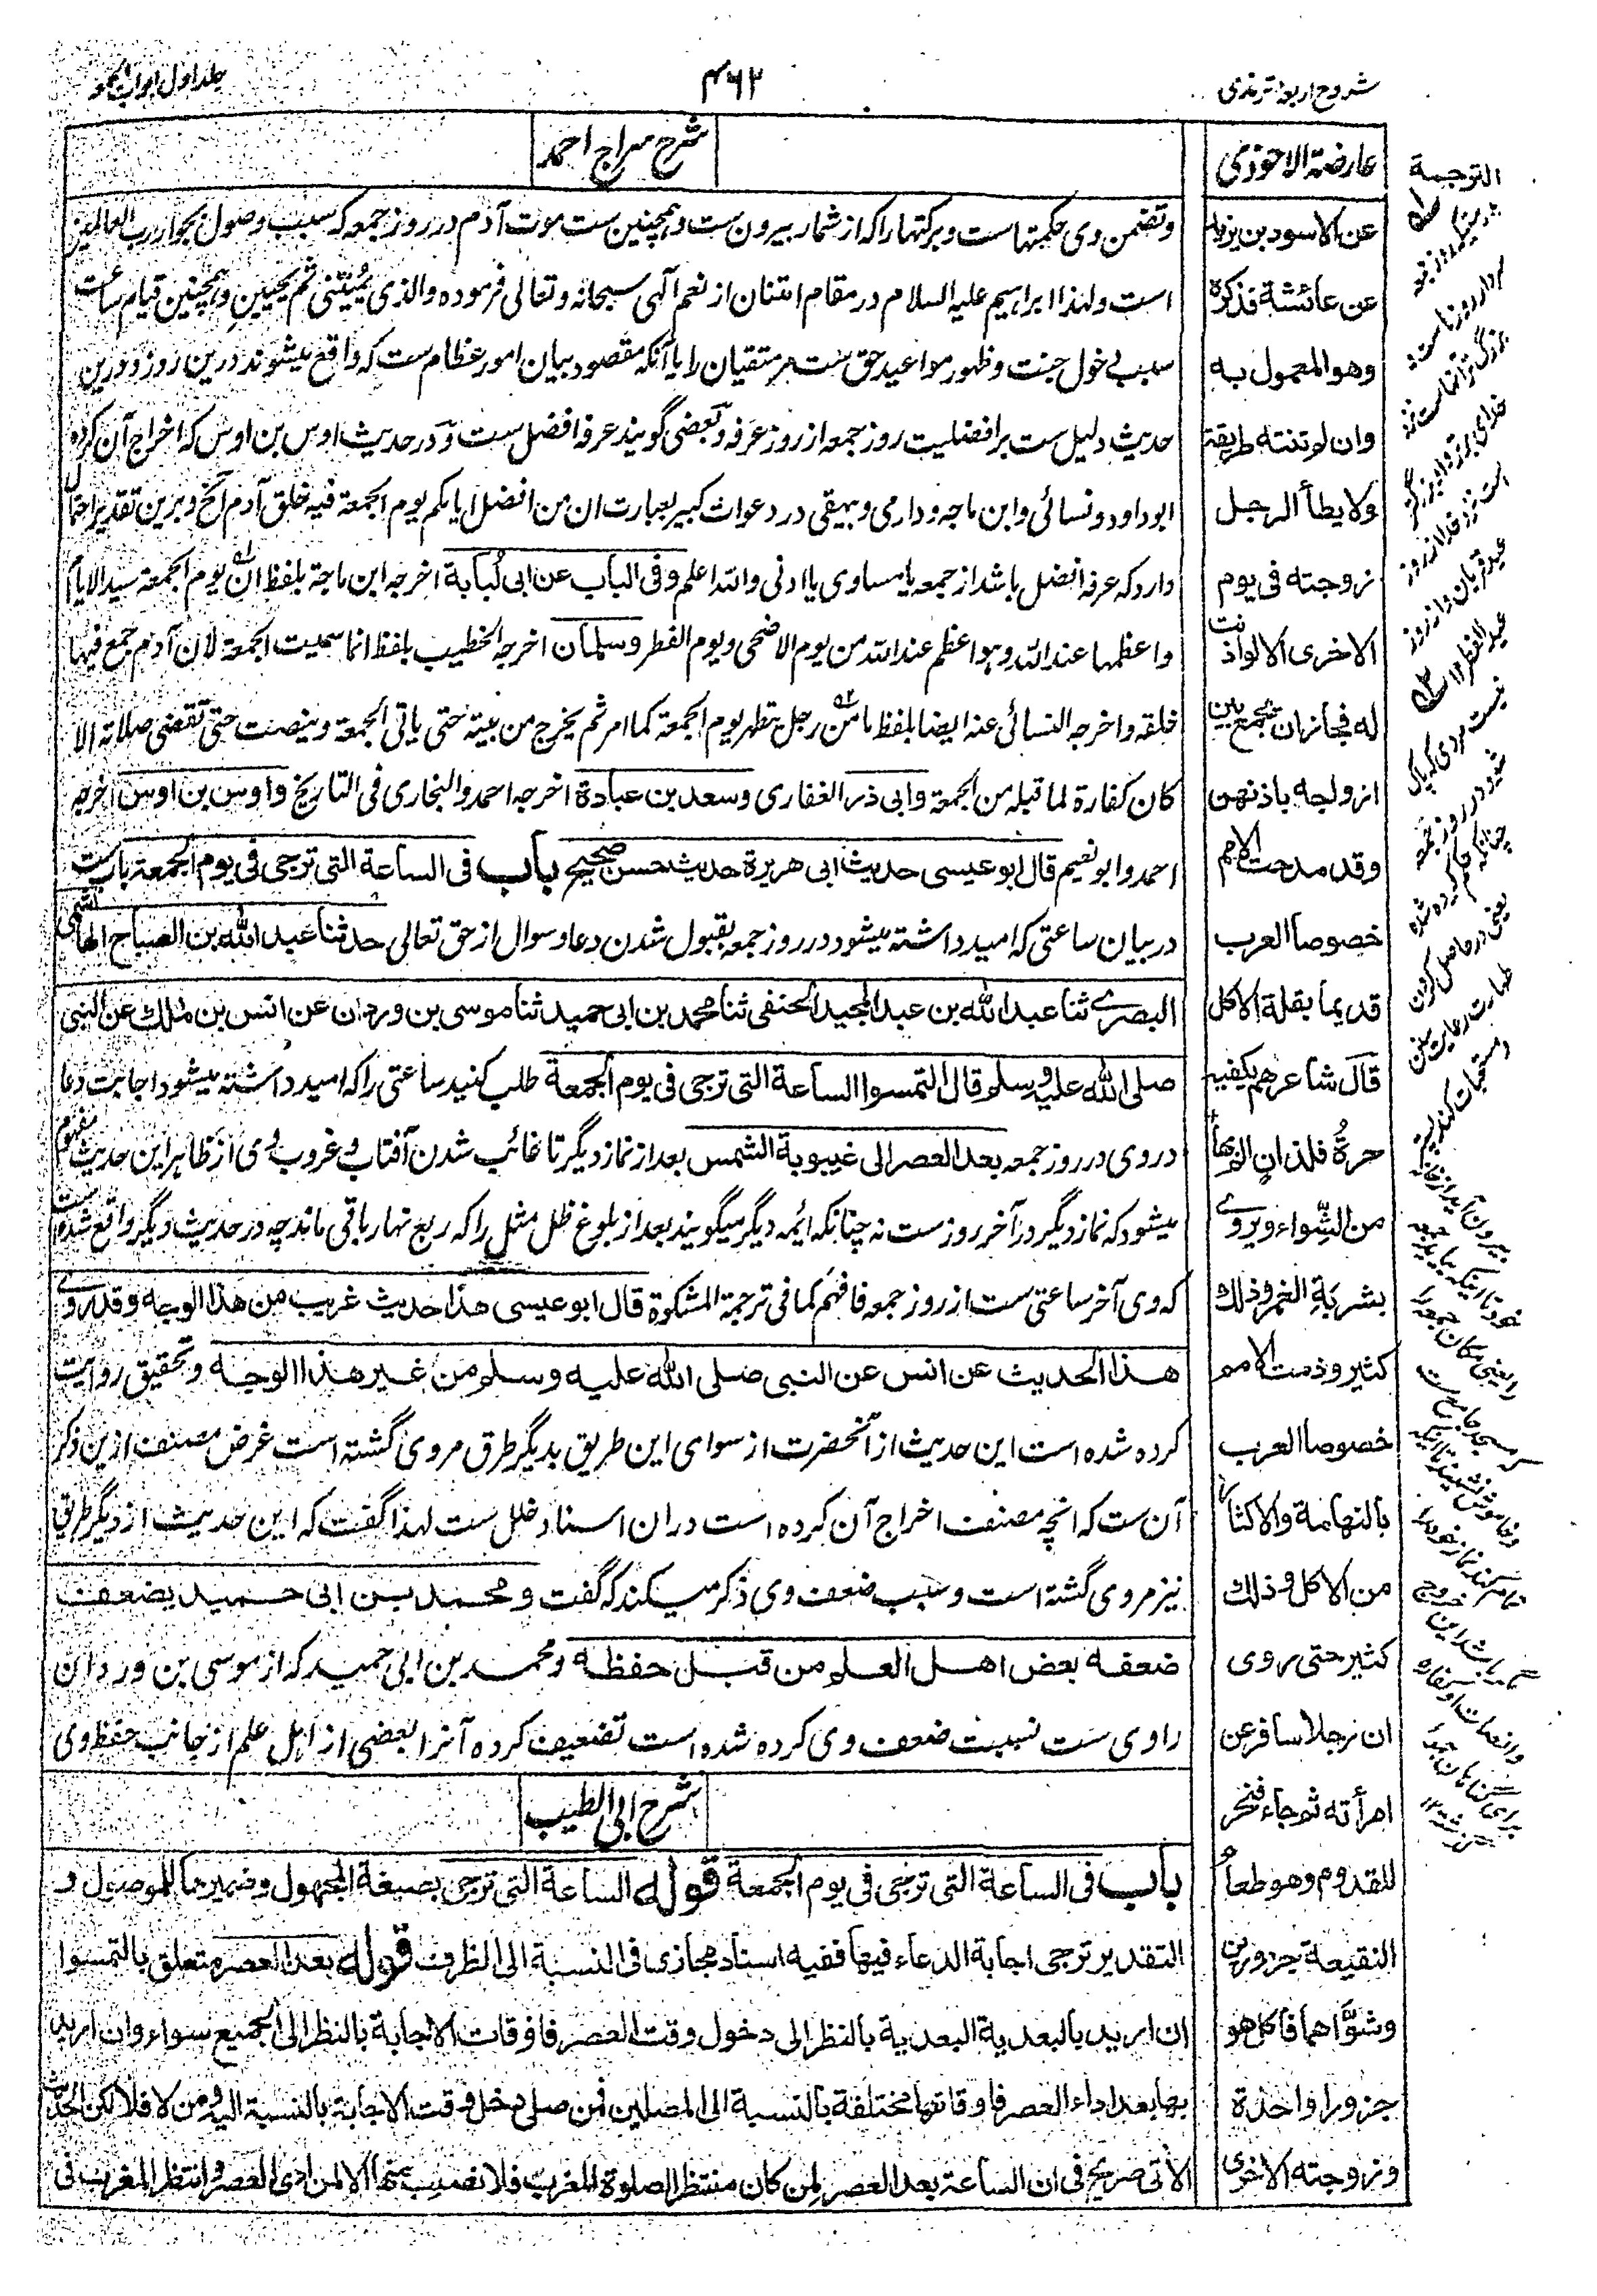 شروح اربعہ ترمذی
۴۶۲
جلد اول ابواب الجمعہ
عارضة الاحوذی
عن الاسود بن یزید
عن عائشة فذکرہ
وهو المعمول به
وان لوتنته طریقة
ولا یطأ الرجل
زوجته فی یوم
الاخری الا لو اذنت
له فجائز ان یجمع بین
ازواجه باذنهن
وقد مدحت الامم
خصوصا العرب
قدیما بقلة الاکل
قال شاعرهم یکفیه
حرة فلذان الم بها
من الشواء ویروی
بشربة الغمر وذلك
کثیر وذمت الامم
خصوصا العرب
بالنهامة والاکثار
من الاکل وذلك
کثیر حتی روی
ان رجلا سافر عن
امرأته ثم جاء فنحر
للقدوم وهو طعام
النقیعة جزورین
وشواهما فاکل هو
جزورا واحدة
وزوجته الاخری
شرح سراج احمد
وتضمن وی حکمتها ست وبرکتها را که از شمار بیرون ست وهمچنین ست موت آدم در روز جمعه که سبب وصول بجوار رب العالمین
است ولهذا ابراهیم علیه السلام در مقام امتنان از نعم آلهی سبحانه وتعالی فرموده والذی یمیتنی ثم یحیین وهمچنین قیام ساعت
سبب دخول جنت وظهور مواعید حق ست مر متقیان را یا آنکه مقصود بیان امور عظام ست که واقع میشوند درین روز ودرین
حدیث دلیل ست بر افضلیت روز جمعه از روز عرفه وبعضی گویند عرفه افضل ست ودر حدیث اوس بن اوس که اخراج آن کرده
ابوداود ونسائی وابن ماجه ودارمی وبیهقی در دعوات کبیر بعبارت ان من افضل ایامکم یوم الجمعة فیه خلق آدم الخ وبرین تقدیر احتمال
دارد که عرفه افضل باشد از جمعه یا مساوی یا ادنی والله اعلم وفی الباب عن ابی لبابة اخرجه ابن ماجة بلفظ ان یوم الجمعة سید الایام
واعظمها عند الله وهو اعظم عند الله من یوم الاضحی ویوم الفطر وسلمان اخرجه الخطیب بلفظ انما سمیت الجمعة لان آدم جمع فیها
خلقه واخرجه النسائی عنه ایضا بلفظ ما من رجل یتطهر یوم الجمعة کما امر ثم یخرج من بیته حتی یاتی الجمعة وینصت حتی تقضی صلاته الا
کان کفارة لما قبله من الجمعة وابی ذر الغفاری وسعد بن عبادة اخرجه احمد والبخاری فی التاریخ واوس بن اوس اخرجه
احمد وابو نعیم قال ابو عیسی حدیث ابی هریرة حدیث حسن صحیح باب فی الساعة التی ترجی فی یوم الجمعة باب ست
در بیان ساعتی که امید داشته میشود در روز جمعه بقبول شدن دعا وسوال از حق تعالی حدثنا عبد الله بن الصباح الهاشمی
البصری ثنا عبد الله بن عبد المجید الحنفی ثنا محمد بن ابی حمید ثنا موسی بن وردان عن انس بن مالك عن النبی
صلی الله علیه وسلم قال التمسوا الساعة التی ترجی فی یوم الجمعة طلب کنید ساعتی را که امید داشته میشود اجابت دعا
در وی در روز جمعه بعد العصر الی غیبوبة الشمس بعد از نماز دیگر تا غائب شدن آفتاب وغروب وی از ظاهر این حدیث مفهوم
میشود که نماز دیگر در آخر روز ست نه چنانکه ائمه دیگر میگویند بعد از بلوغ ظل مثل را که ربع نهار باقی ماند چه در حدیث دیگر واقع شده است
که وی آخر ساعتی ست از روز جمعه فافهم کما فی ترجمة المشکوة قال ابو عیسی هذا حدیث غریب من هذا الوجه وقد روی
هذا الحدیث عن انس عن النبی صلی الله علیه وسلم من غیر هذا الوجه وتحقیق روایت
کرده شده است این حدیث از آنحضرت از سوای این طریق بدیگر طرق مروی گشته است غرض مصنف ازین ذکر
آن ست که انچه مصنف اخراج آن کرده است دران اسناد خلل ست لهذا گفت که این حدیث از دیگر طرق
نیز مروی گشته است وسبب ضعف وی ذکر میکند که گفت ومحمد بن ابی حمید یضعف
ضعفه بعض اهل العلم من قبل حفظه ومحمد بن ابی حمید که از موسی بن وردان
راوی ست نسبت ضعف وی کرده شده است تضعیف کرده آنرا بعضی از اهل علم از جانب حفظ وی
شرح ابی الطیب
باب فی الساعة التی ترجی فی یوم الجمعة قوله الساعة التی ترجی بصیغة المجهول وضمیرها للموصول و
التقدیر ترجی اجابة الدعاء فیها ففیه اسناد مجازی فی النسبة الی الظرف قوله بعد العصر متعلق بالتمسوا
ان ارید بالبعدیة البعدیة بالنظر الی دخول وقت العصر فاوقات الاجابة بالنظر الی الجمیع سواء وان ارید
بها بعد اداء العصر فاوقاتها مختلفة بالنسبة الی المصلین فمن صلی دخل وقت الاجابة بالنسبة الیه ومن لا فلا لکن الحدیث
الآتی صریح فی ان الساعة بعد العصر لمن کان منتظر الصلوة المغرب فلا نصیب منها الا لمن ادی العصر وانتظر المغرب فی
الترجمة
بدرستیکه روز جمعه
سردار روزها ست
بزرگ تر آنها ست نزد
خدای برتر واو بزرگتر
است نزد خدا از روز
عید قربان واز روز
عید الفطر ۱۲
نیست مردی که پاک
شود در روز جمعه
چنانکه حکم کرده شده
یعنی در حاصل کردن
طهارت رعایت سنن
ومستحبات کند پستر
بیرون آید از خانه
خود تا اینکه بیاید جمعه
را یعنی مکان جمعه را
که مسجد جامع است
وخاموش نشیند تا اینکه